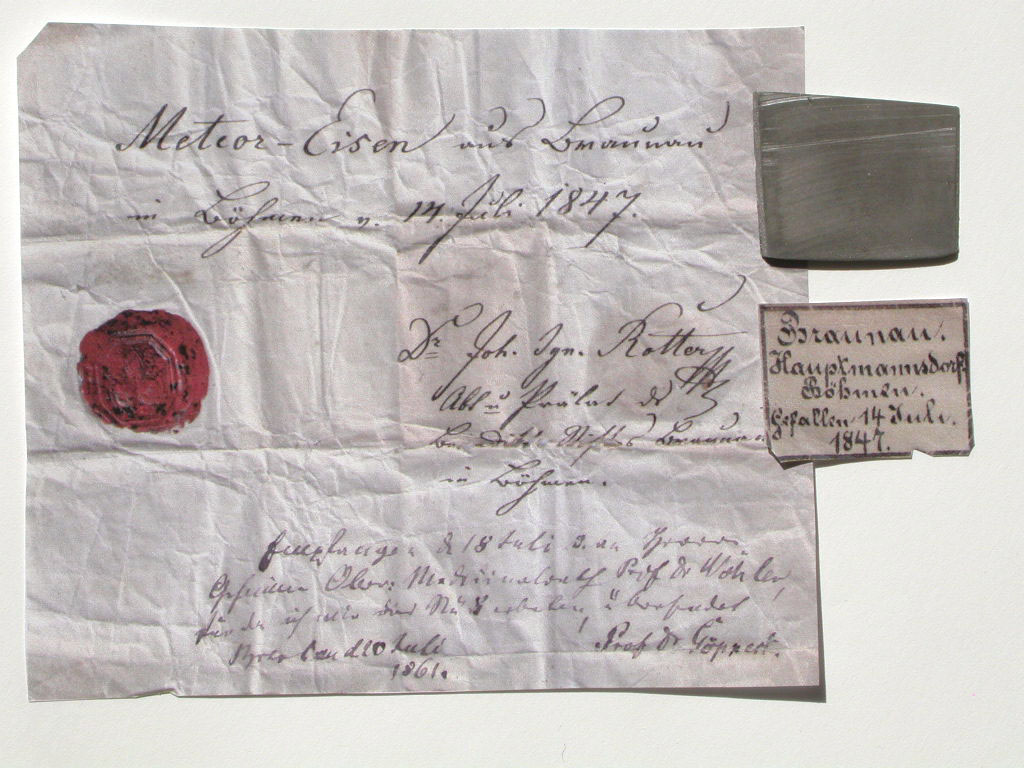 Meteor-Eisen aus Braunau
in Böhmen v. 14. Juli 1847.
Dr Joh. Ign. Rotter
Abt u Prälat des
Stiftes Braunau
in Böhmen.
Empfangen d 18 Juli
Geheimen Ober: Medicinalrath Prof Dr Wöhler,
für den ich mir dies
Juli Prof Dr Göppert.
1861.
Braunau.
Hauptmannsdorf
Böhmen.
Gefallen 14 Juli.
1847.